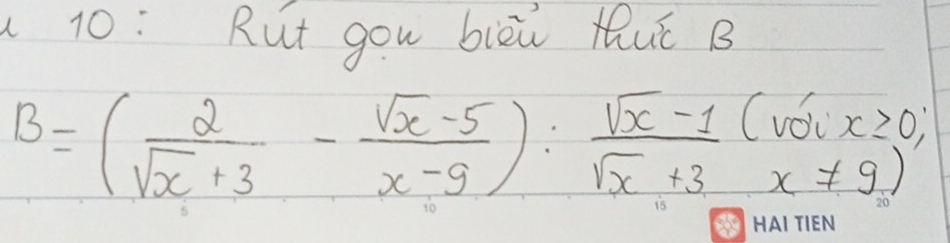 10: Rút gọn biểu thức B
B = ( 2/(√x + 3) - (√x - 5)/(x - 9) ) : (√x - 1)/(√x + 3) (với x ≥ 0;
x ≠ 9)
5 10 15 20
HAI TIEN